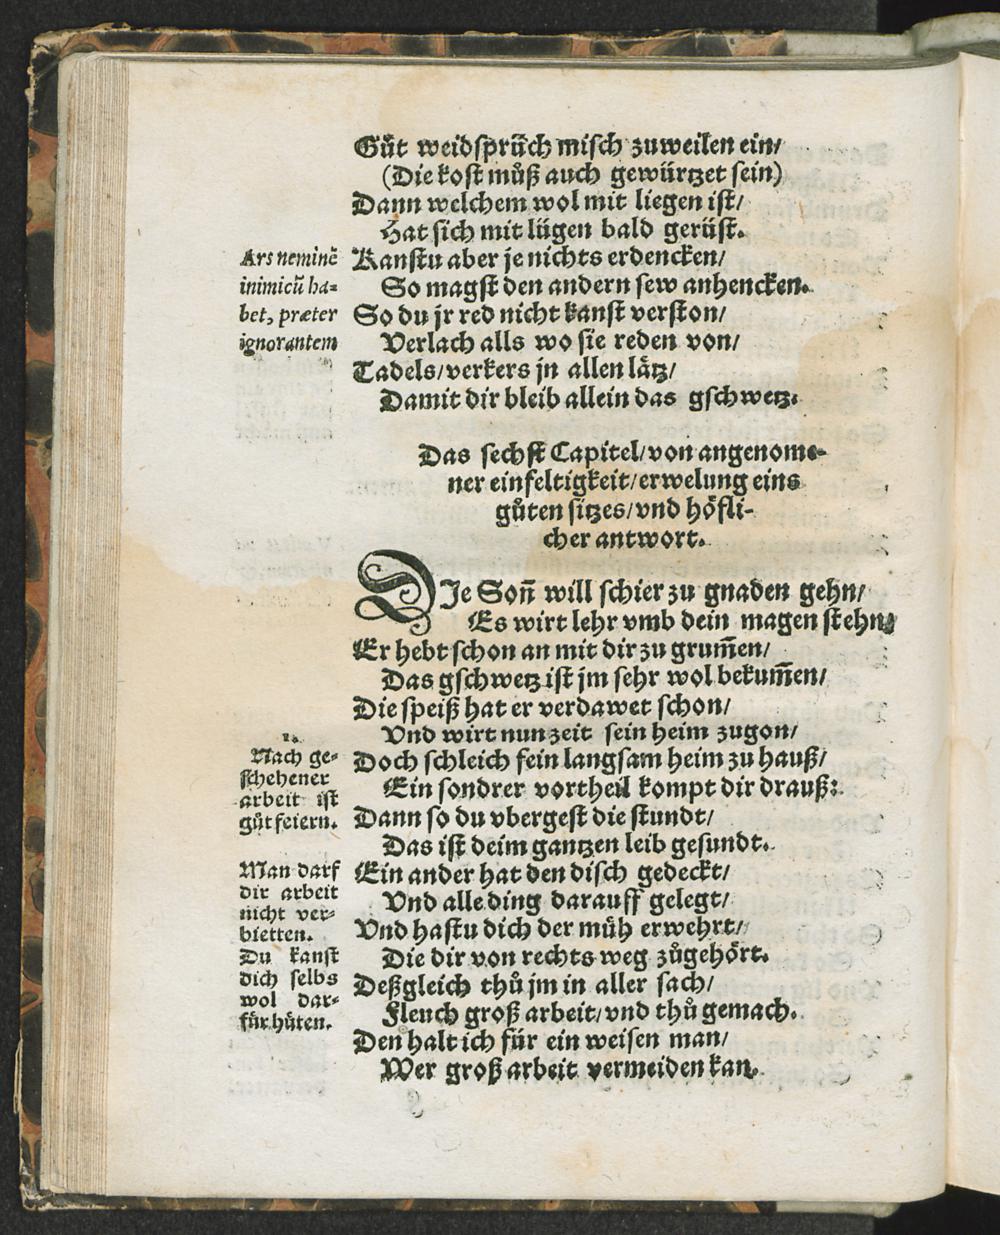 Gůt weidsprüch misch zuweilen ein/
(Die kost můß auch gewürtzet sein)
Dann welchem wol mit liegen ist/
Hat sich mit lügen bald gerüst.
Kanstu aber je nichts erdencken/
So magst den andern sew anhencken.
So du jr red nicht kanst verston/
Verlach alls wo sie reden von/
Tadels/verkers jn allen lätz/
Damit dir bleib allein das gschwetz.
Ars neminē
inimicū ha-
bet, præter
ignorantem
Das sechst Capitel/von angenome-
ner einfeltigkeit/erwelung eins
gůten sitzes/vnd höfli-
cher antwort.
DIe Soñ will schier zu gnaden gehn/
Es wirt lehr vmb dein magen stehn/
Er hebt schon an mit dir zu grum̄en/
Das gschwetz ist jm sehr wol bekum̄en/
Die speiß hat er verdawet schon/
Vnd wirt nun zeit sein heim zugon/
Doch schleich fein langsam heim zu hauß/
Ein sondrer vortheil kompt dir drauß:
Dann so du vbergest die stundt/
Das ist deim gantzen leib gesundt.
Ein ander hat den disch gedeckt/
Vnd alle ding darauff gelegt/
Vnd hastu dich der müh erwehrt/
Die dir von rechts weg zůgehört.
Deßgleich thů jm in aller sach/
Fleuch groß arbeit/vnd thů gemach.
Den halt ich für ein weisen man/
Wer groß arbeit vermeiden kan.
Nach ge-
schehener
arbeit ist
gůt feiern.
Man darf
dir arbeit
nicht ver-
bietten.
Du kanst
dich selbs
wol dar-
für hüten.